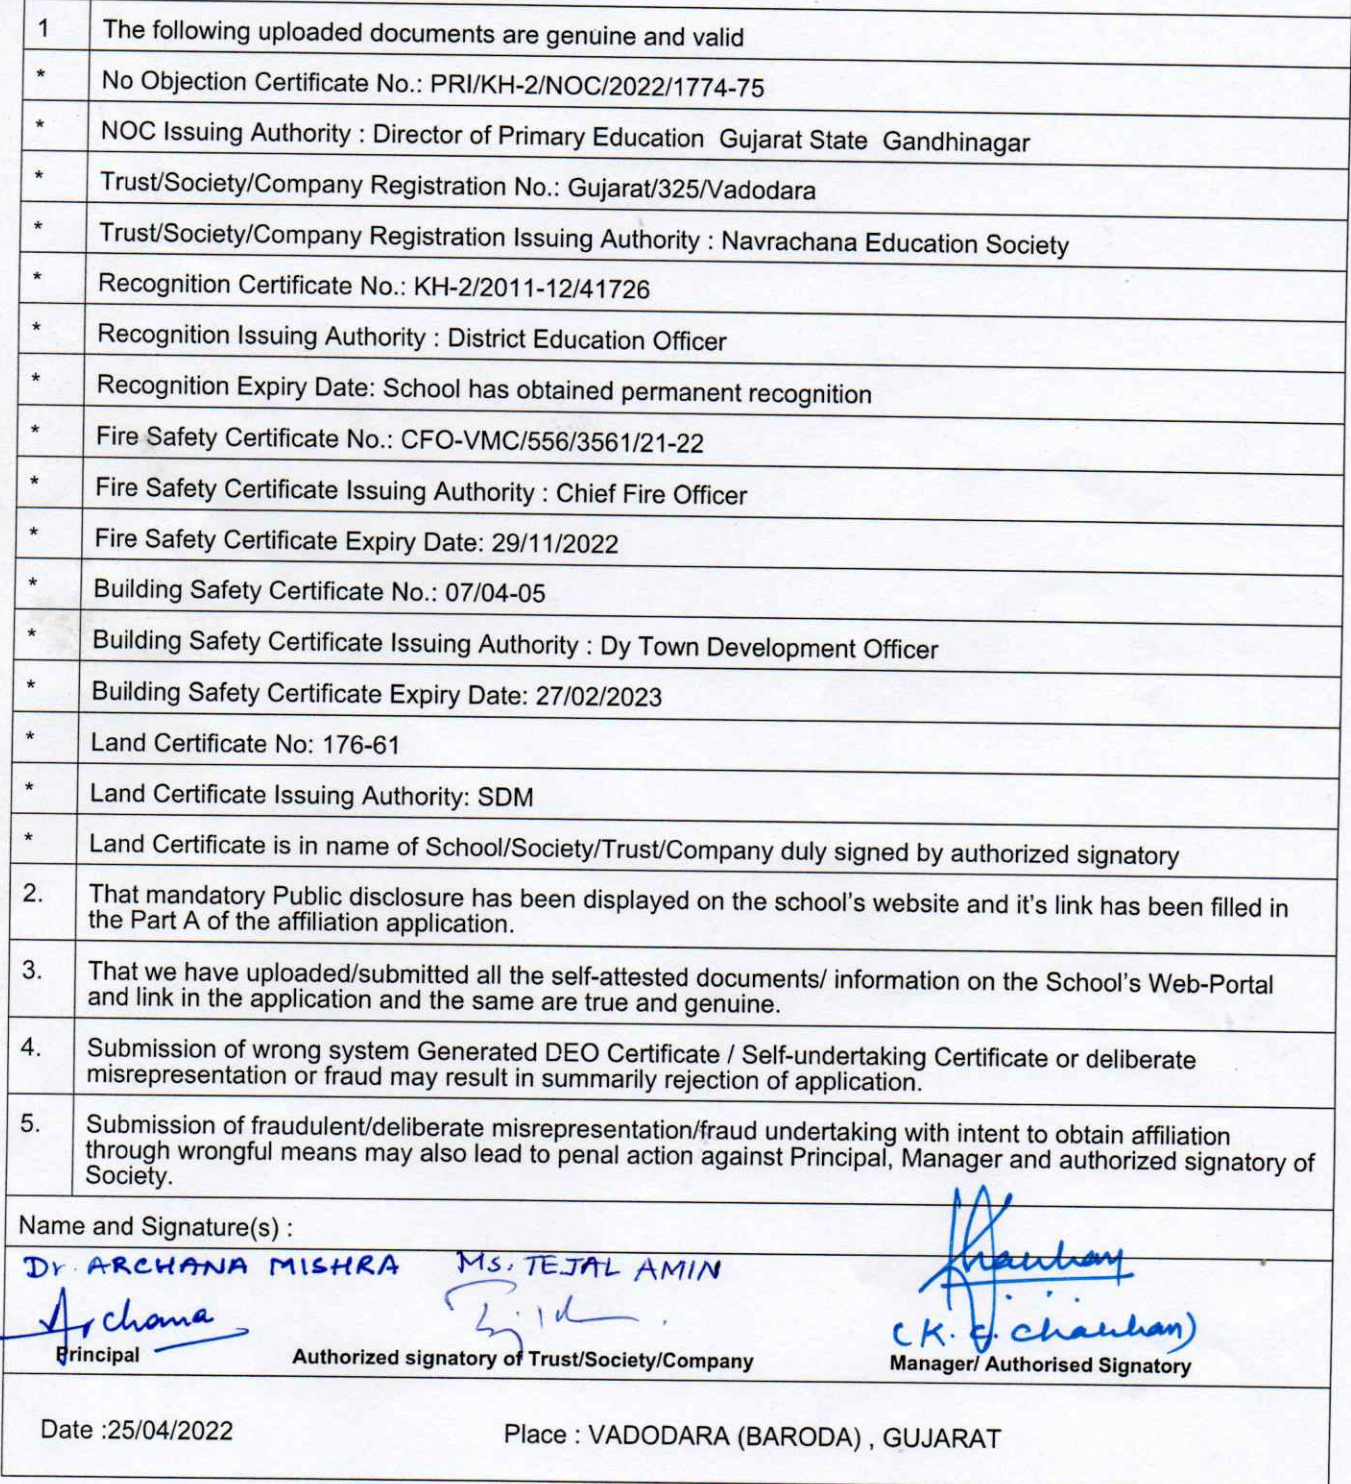 1 The following uploaded documents are genuine and valid
* No Objection Certificate No.: PRI/KH-2/NOC/2022/1774-75
* NOC Issuing Authority : Director of Primary Education Gujarat State Gandhinagar
* Trust/Society/Company Registration No.: Gujarat/325/Vadodara
* Trust/Society/Company Registration Issuing Authority : Navrachana Education Society
* Recognition Certificate No.: KH-2/2011-12/41726
* Recognition Issuing Authority : District Education Officer
* Recognition Expiry Date: School has obtained permanent recognition
* Fire Safety Certificate No.: CFO-VMC/556/3561/21-22
* Fire Safety Certificate Issuing Authority : Chief Fire Officer
* Fire Safety Certificate Expiry Date: 29/11/2022
* Building Safety Certificate No.: 07/04-05
* Building Safety Certificate Issuing Authority : Dy Town Development Officer
* Building Safety Certificate Expiry Date: 27/02/2023
* Land Certificate No: 176-61
* Land Certificate Issuing Authority: SDM
* Land Certificate is in name of School/Society/Trust/Company duly signed by authorized signatory
2. That mandatory Public disclosure has been displayed on the school's website and it's link has been filled in
the Part A of the affiliation application.
3. That we have uploaded/submitted all the self-attested documents/ information on the School's Web-Portal
and link in the application and the same are true and genuine.
4. Submission of wrong system Generated DEO Certificate / Self-undertaking Certificate or deliberate
misrepresentation or fraud may result in summarily rejection of application.
5. Submission of fraudulent/deliberate misrepresentation/fraud undertaking with intent to obtain affiliation
through wrongful means may also lead to penal action against Principal, Manager and authorized signatory of
Society.
Name and Signature(s) :
Dr. ARCHANA MISHRA Ms. TEJAL AMIN
Archana (K. Chauhan)
Principal Authorized signatory of Trust/Society/Company Manager/ Authorised Signatory
Date :25/04/2022 Place : VADODARA (BARODA) , GUJARAT